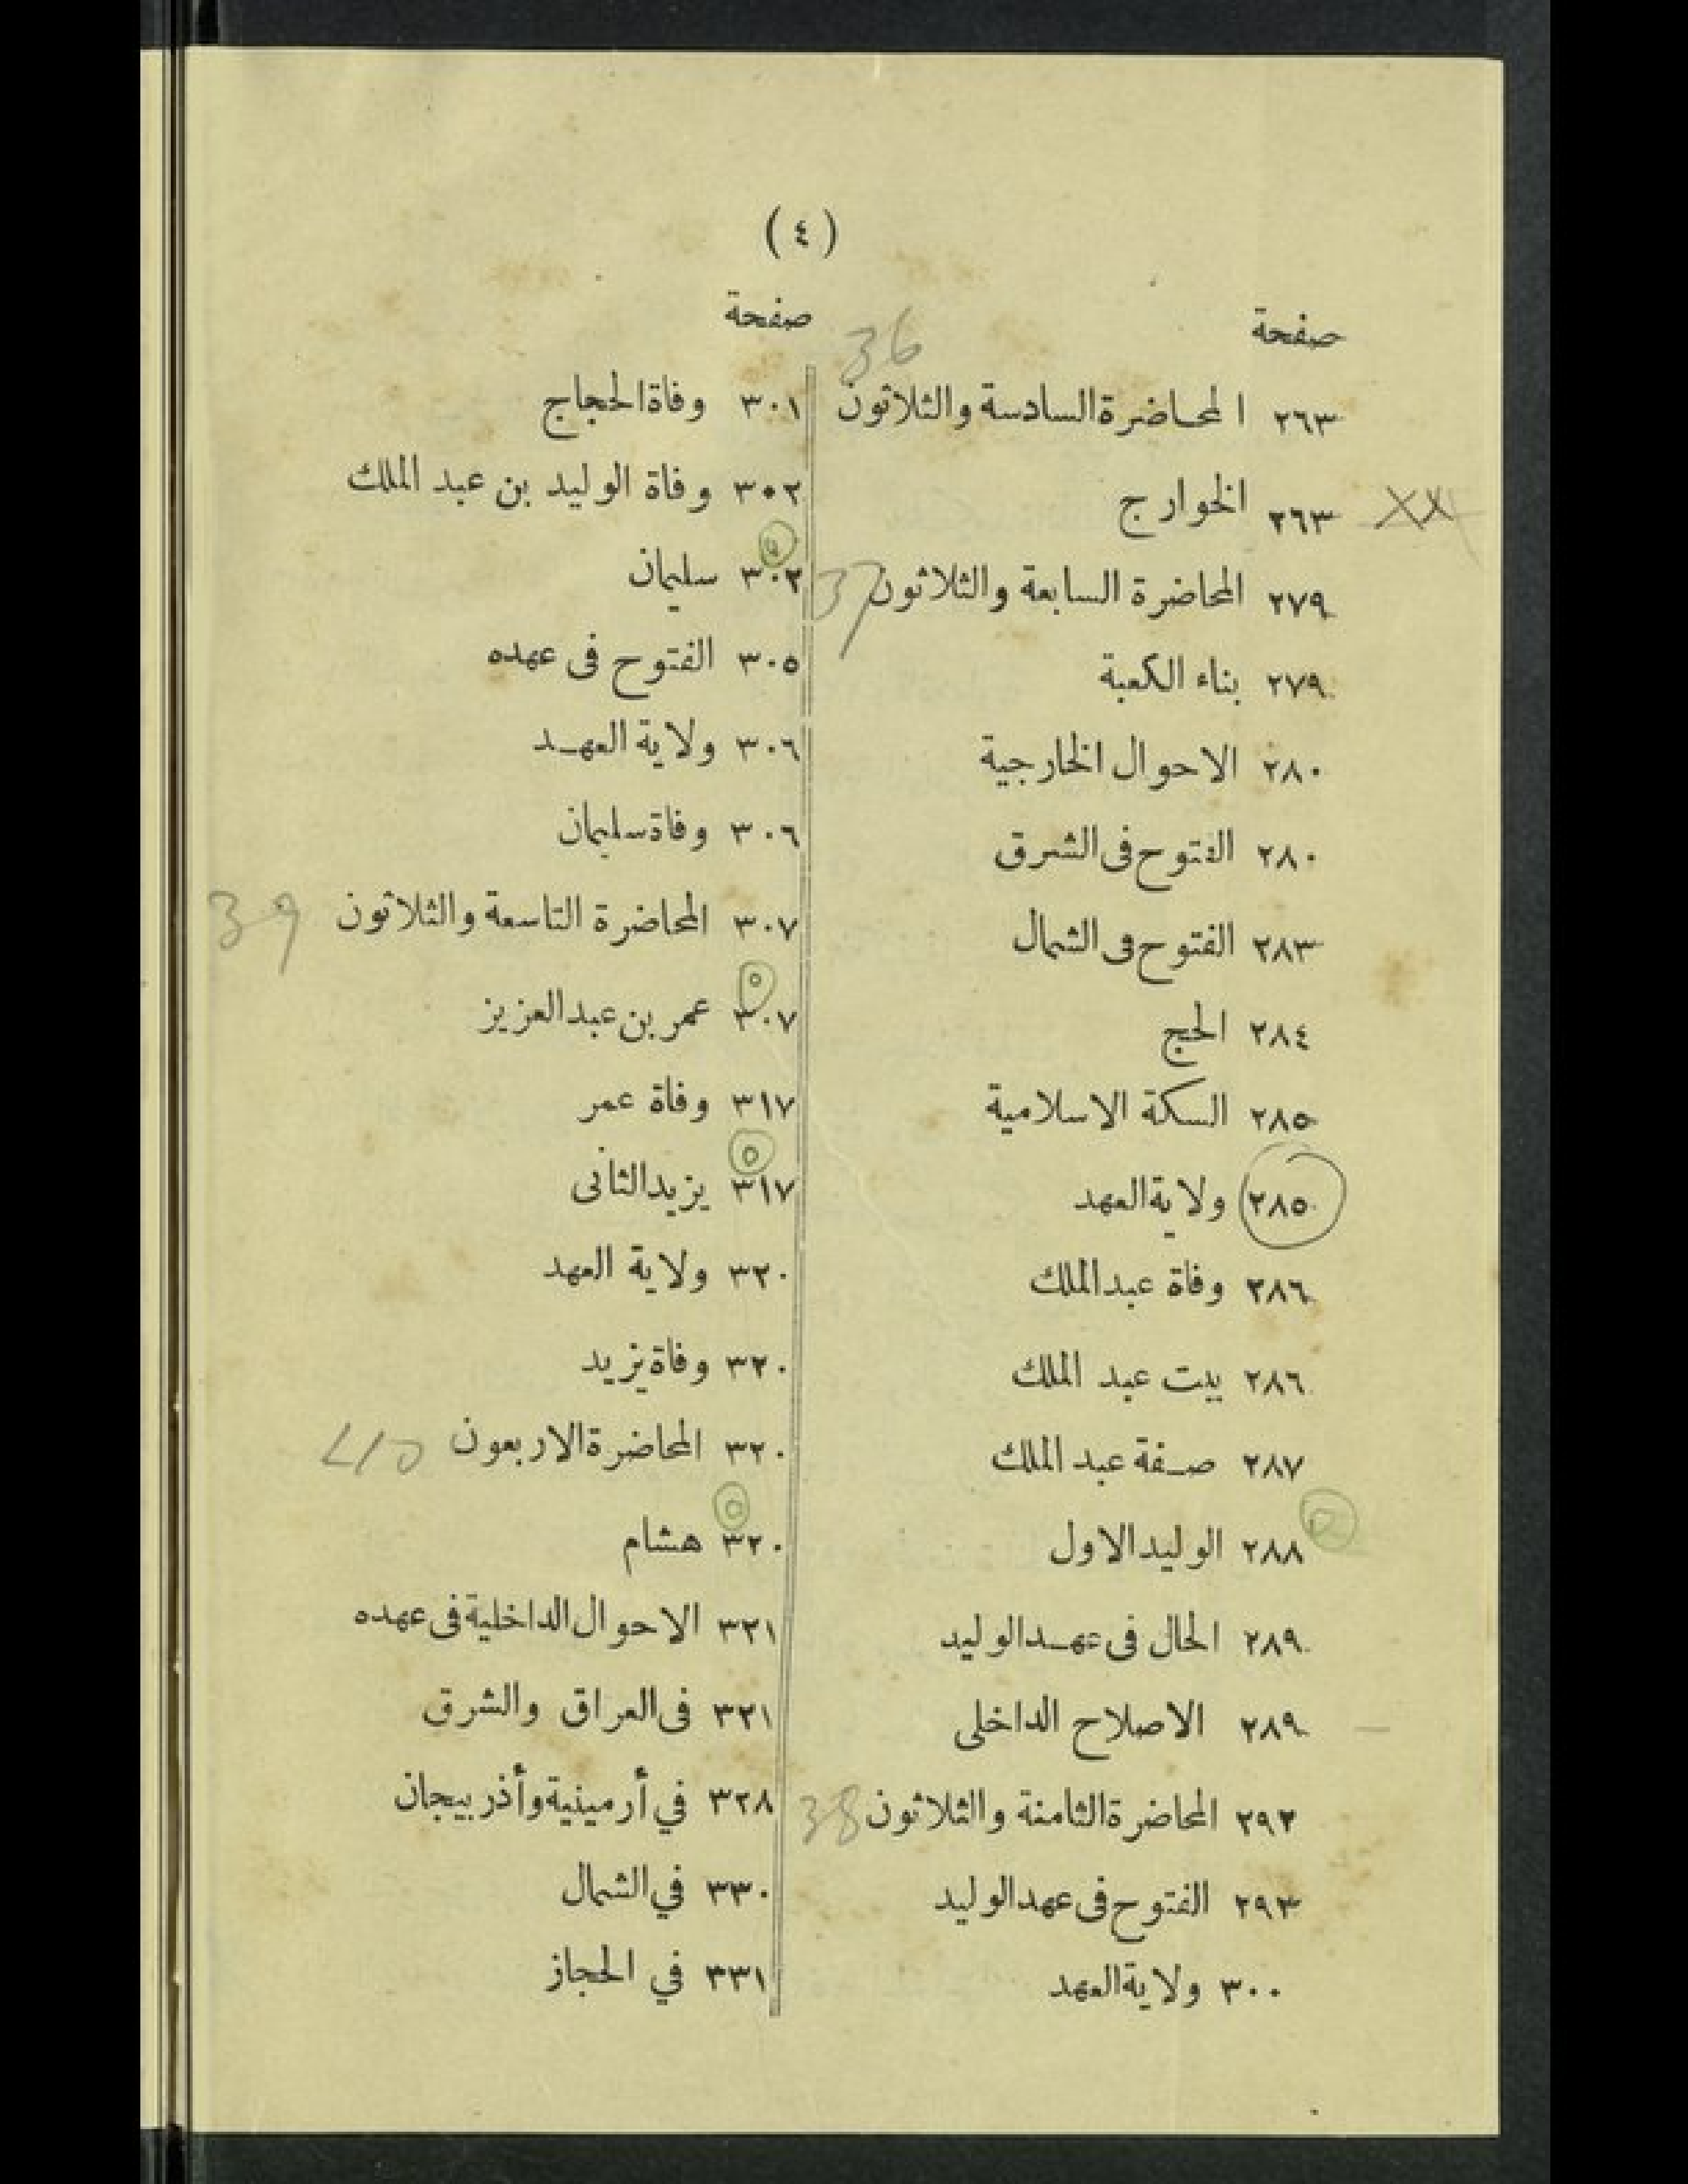 (٤)
صفحة
36
٢٦٣ المحاضرة السادسة والثلاثون
٢٦٣ الخوارج
XX
٢٧٩ المحاضرة السابعة والثلاثون
37
٢٧٩ بناء الكعبة
٢٨٠ الاحوال الخارجية
٢٨٠ الفتوح فى الشرق
٢٨٣ الفتوح فى الشمال
٢٨٤ الحج
٢٨٥ السكة الاسلامية
٢٨٥ ولاية العهد
٢٨٦ وفاة عبد الملك
٢٨٦ بيت عبد الملك
٢٨٧ صفة عبد الملك
٢٨٨ الوليد الاول
٢٨٩ الحال فى عهد الوليد
٢٨٩ الاصلاح الداخلى
٢٩٢ المحاضرة الثامنة والثلاثون
38
٢٩٣ الفتوح فى عهد الوليد
٣٠٠ ولاية العهد
صفحة
٣٠١ وفاة الحجاج
٣٠٢ وفاة الوليد بن عبد الملك
٣٠٢ سليمان
٣٠٥ الفتوح فى عهده
٣٠٦ ولاية العهد
٣٠٦ وفاة سليمان
٣٠٧ المحاضرة التاسعة والثلاثون
39
٣٠٧ عمر بن عبد العزيز
٣١٧ وفاة عمر
٣١٧ يزيد الثانى
٣٢٠ ولاية العهد
٣٢٠ وفاة يزيد
٣٢٠ المحاضرة الاربعون
40
٣٢٠ هشام
٣٢١ الاحوال الداخلية فى عهده
٣٢١ فى العراق والشرق
٣٢٨ في أرمينية وأذربيجان
٣٣٠ في الشمال
٣٣١ في الحجاز